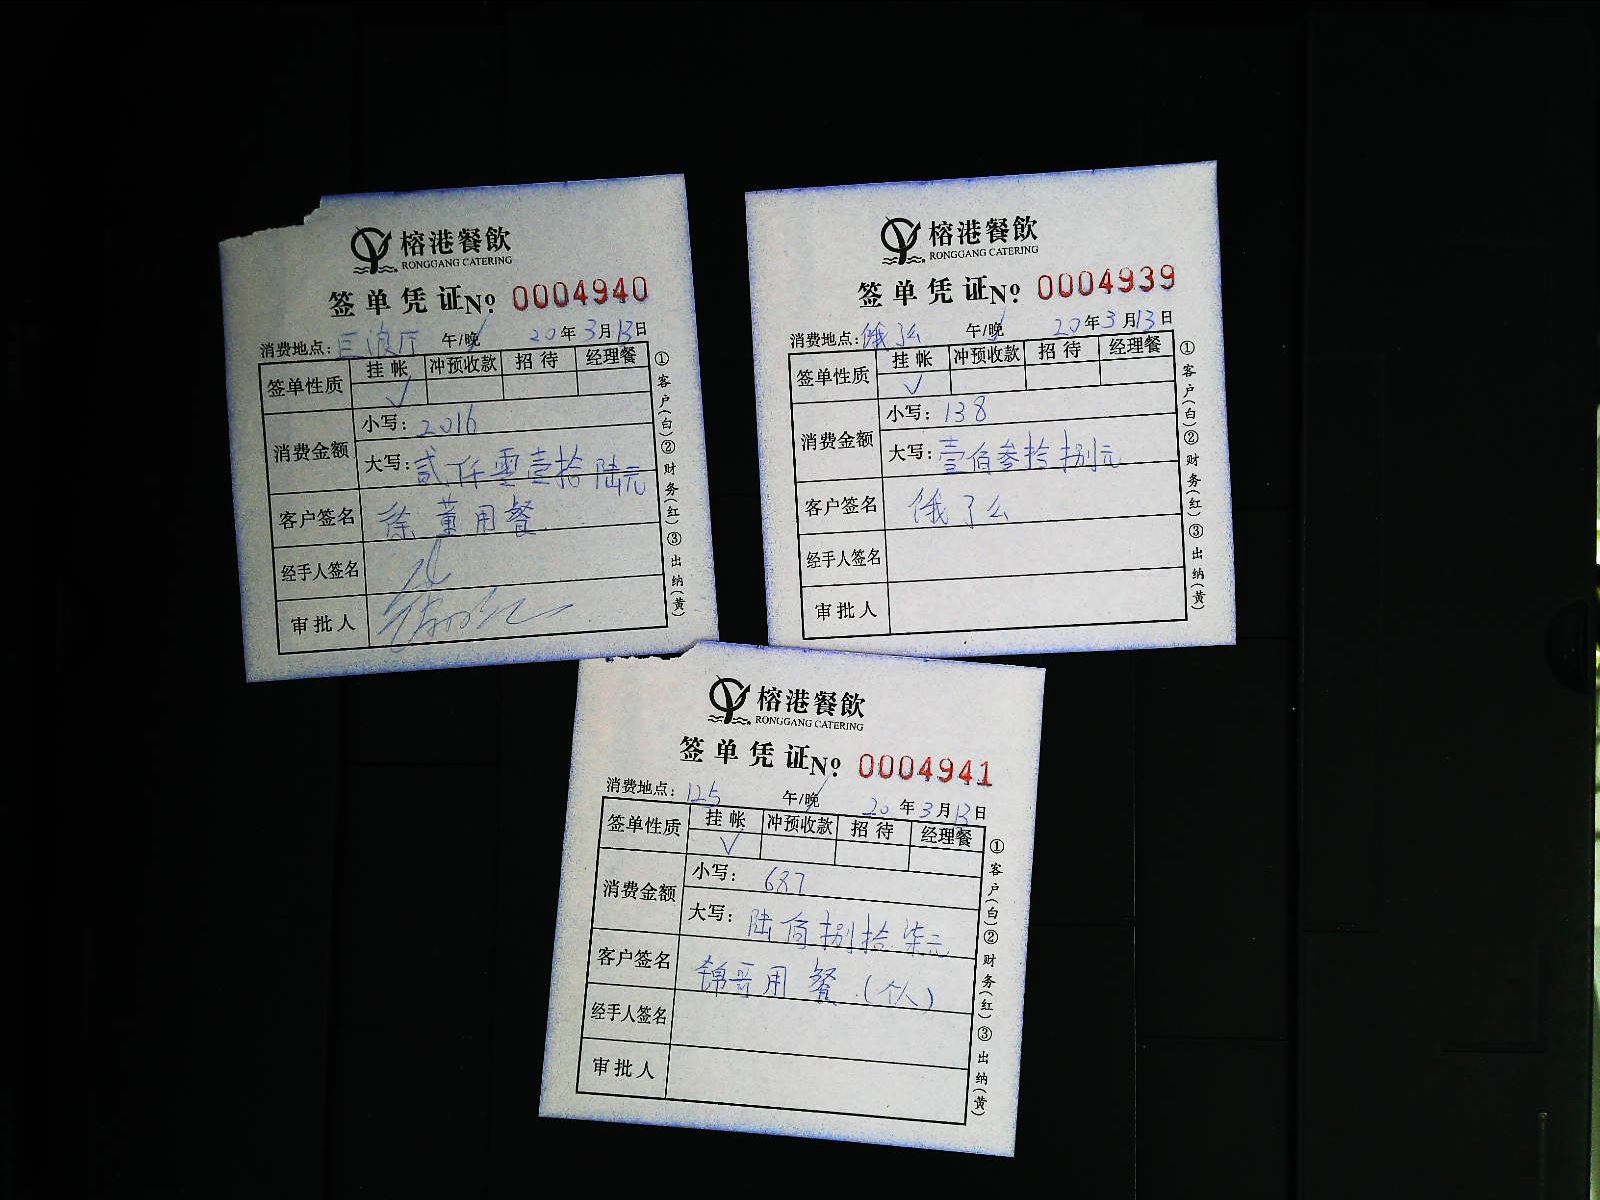 榕港餐飲
RONGGANG CATERING
签单凭证 № 0004940
消费地点: 巨浪厅 午/晚 20年3月13日
签单性质 挂帐 冲预收款 招待 经理餐
√
消费金额 小写: 2016
大写: 贰仟零壹拾陆元
客户签名 徐董用餐
经手人签名
审批人
①客户(白)②财务(红)③出纳(黄)
榕港餐飲
RONGGANG CATERING
签单凭证 № 0004939
消费地点: 饿了么 午/晚 20年3月13日
签单性质 挂帐 冲预收款 招待 经理餐
√
消费金额 小写: 138
大写: 壹佰叁拾捌元
客户签名 饿了么
经手人签名
审批人
①客户(白)②财务(红)③出纳(黄)
榕港餐飲
RONGGANG CATERING
签单凭证 № 0004941
消费地点: 125 午/晚 20年3月13日
签单性质 挂帐 冲预收款 招待 经理餐
√
消费金额 小写: 687
大写: 陆佰捌拾柒元
客户签名 锦哥用餐(个人)
经手人签名
审批人
①客户(白)②财务(红)③出纳(黄)